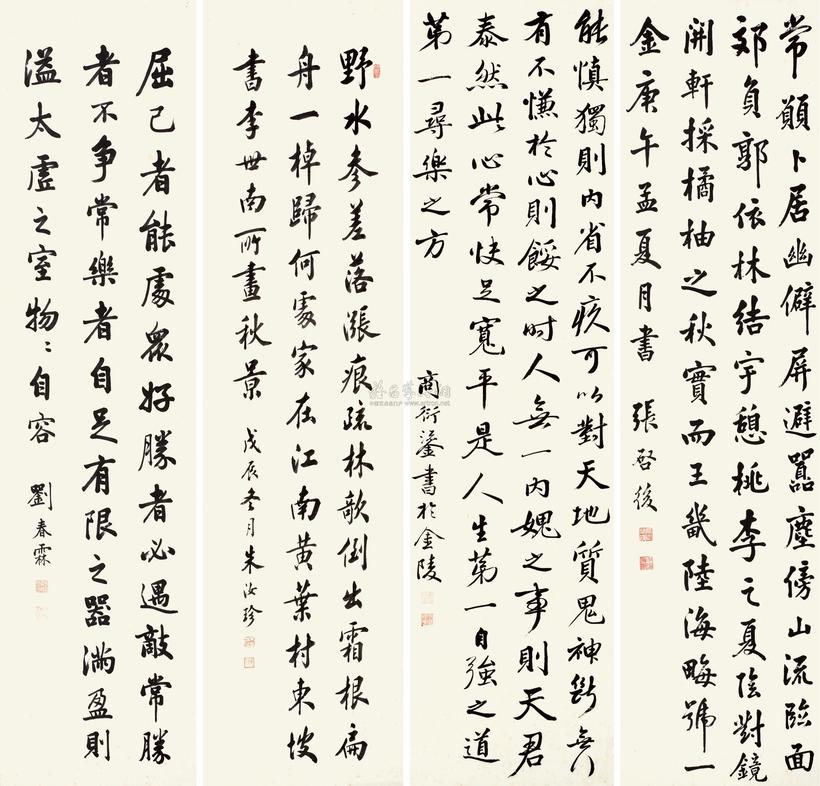 常顧卜居幽僻屏避囂塵傍山流臨面
郊負郭依林結宇憩桃李之夏陰對鏡
開軒採橘柚之秋實而王畿陸海畮號一
金庚午孟夏月書
張啓後
能慎獨則內省不疚可以對天地質鬼神斷無
有不慊於心則餒之時人無一內媿之事則天君
泰然此心常快足寬平是人生第一自強之道
第一尋樂之方
商衍鎏書於金陵
野水參差落漲痕疏林欹倒出霜根扁
舟一棹歸何處家在江南黃葉村東坡
書李世南所畫秋景
戊辰冬月朱汝珍
屈己者能處眾好勝者必遇敵常勝
者不爭常樂者自足有限之器滿盈則
溢太虛之室物〻自容
劉春霖